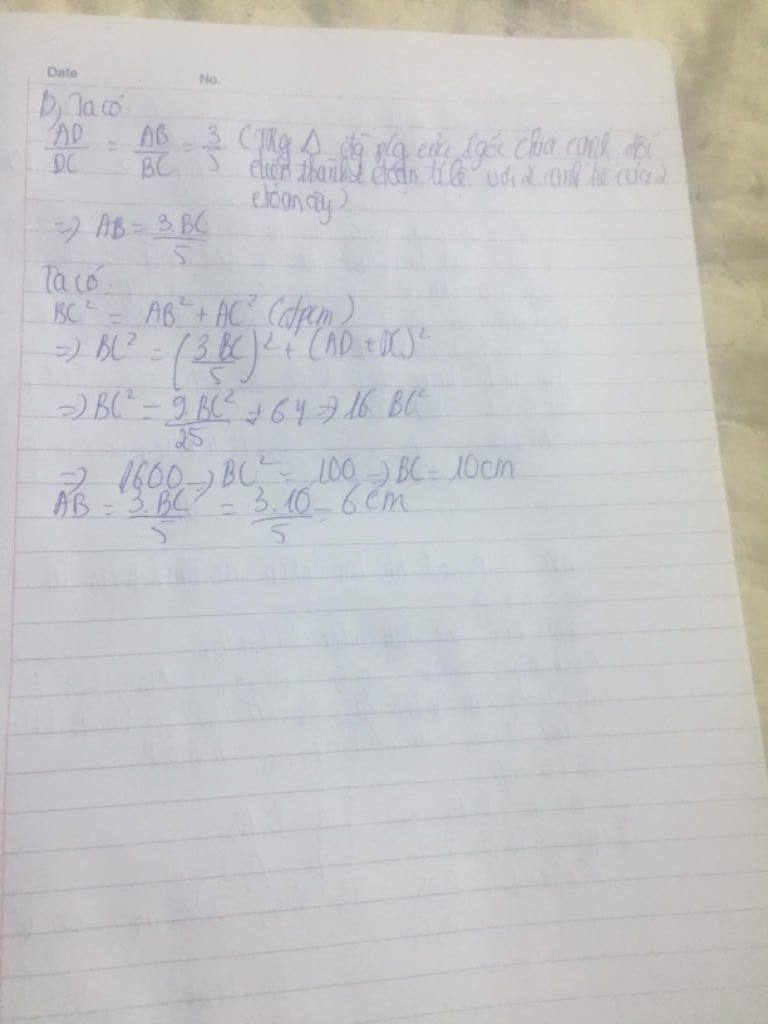 Date No.
D, Ta có:
AD/DC = AB/BC = 3/5 (Trg Δ đg p/g của 1 góc chia cạnh đối
diện thành 2 đoạn tỉ lệ với 2 cạnh kề của 2
đoạn ấy)
=> AB = 3.BC/5
Ta có:
BC² = AB² + AC² (đpcm)
=> BC² = (3.BC/5)² + (AD + DC)²
=> BC² = 9.BC²/25 + 64 => 16.BC²
=> 1600 => BC² = 100 => BC = 10cm
AB = 3.BC/5 = 3.10/5 = 6cm